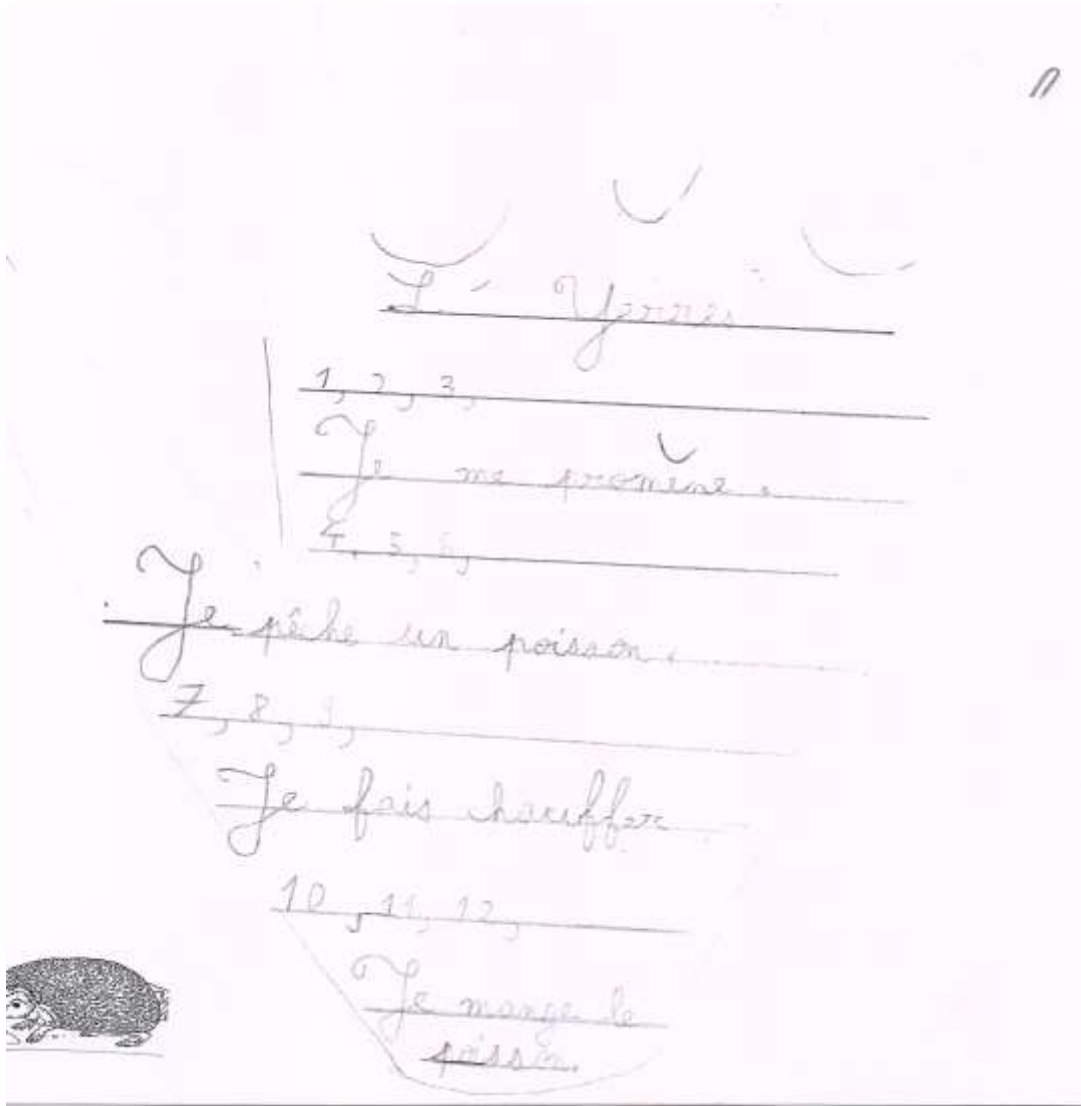 L' Yerres
1, 2, 3,
Je me promène.
4, 5, 6,
Je pêche un poisson.
7, 8, 9,
Je fais chauffer
10, 11, 12,
Je mange le
poisson.